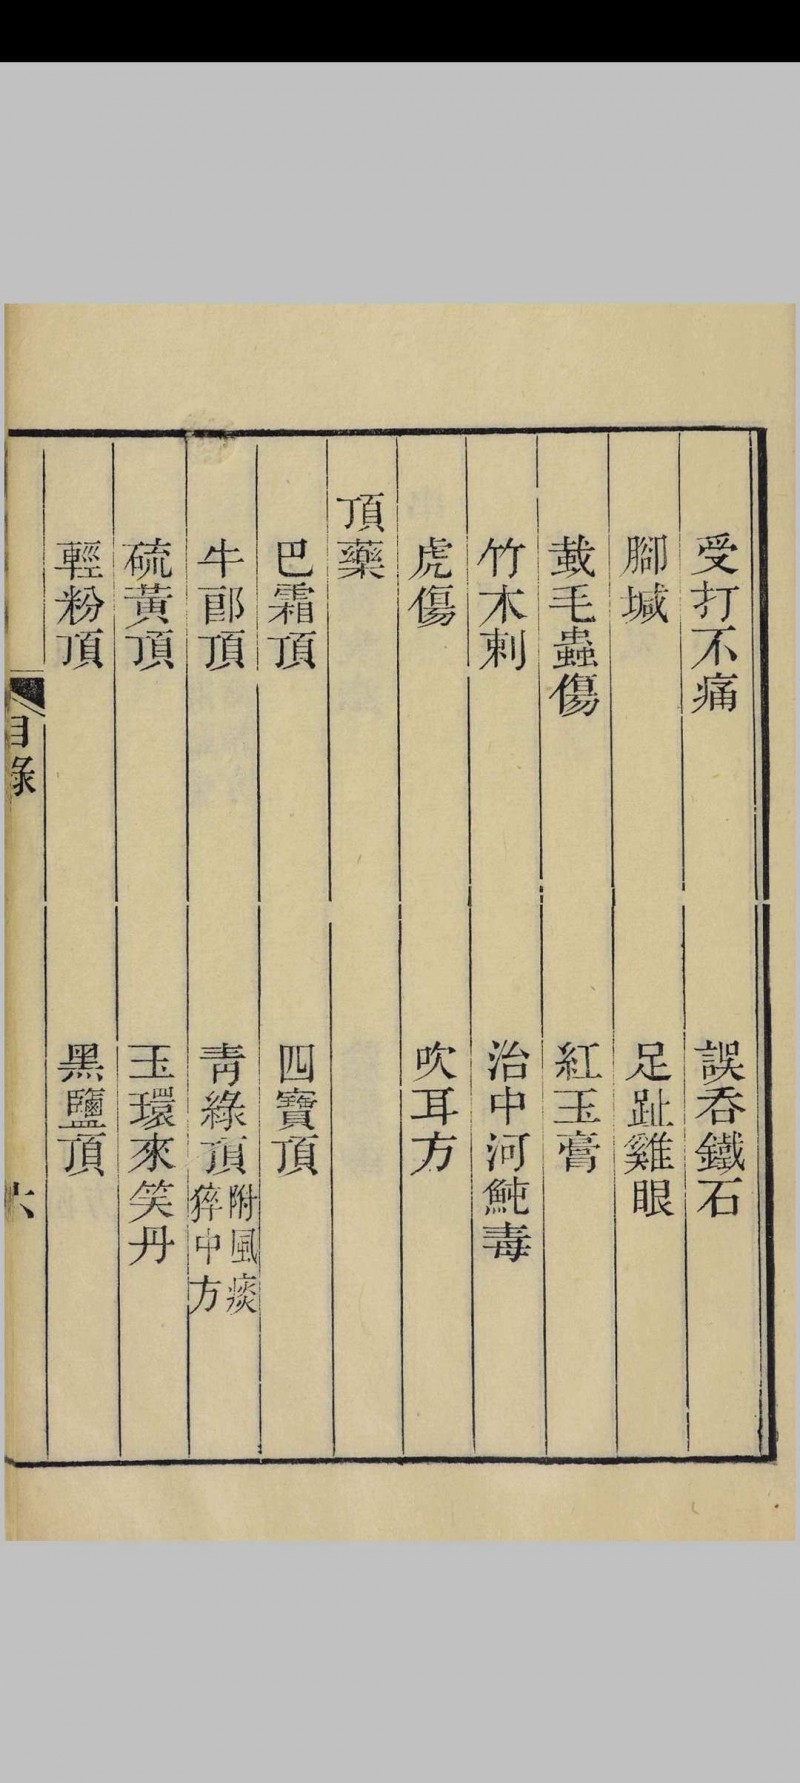 受打不痛 誤吞鐵石
腳堿 足趾雞眼
蛓毛蟲傷 紅玉膏
竹木刺 治中河魨毒
虎傷 吹耳方
頂藥
巴霜頂 四寶頂
牛郎頂 靑綠頂 附風痰猝中方
硫黃頂 玉環來笑丹
輕粉頂 黑鹽頂
目錄 六